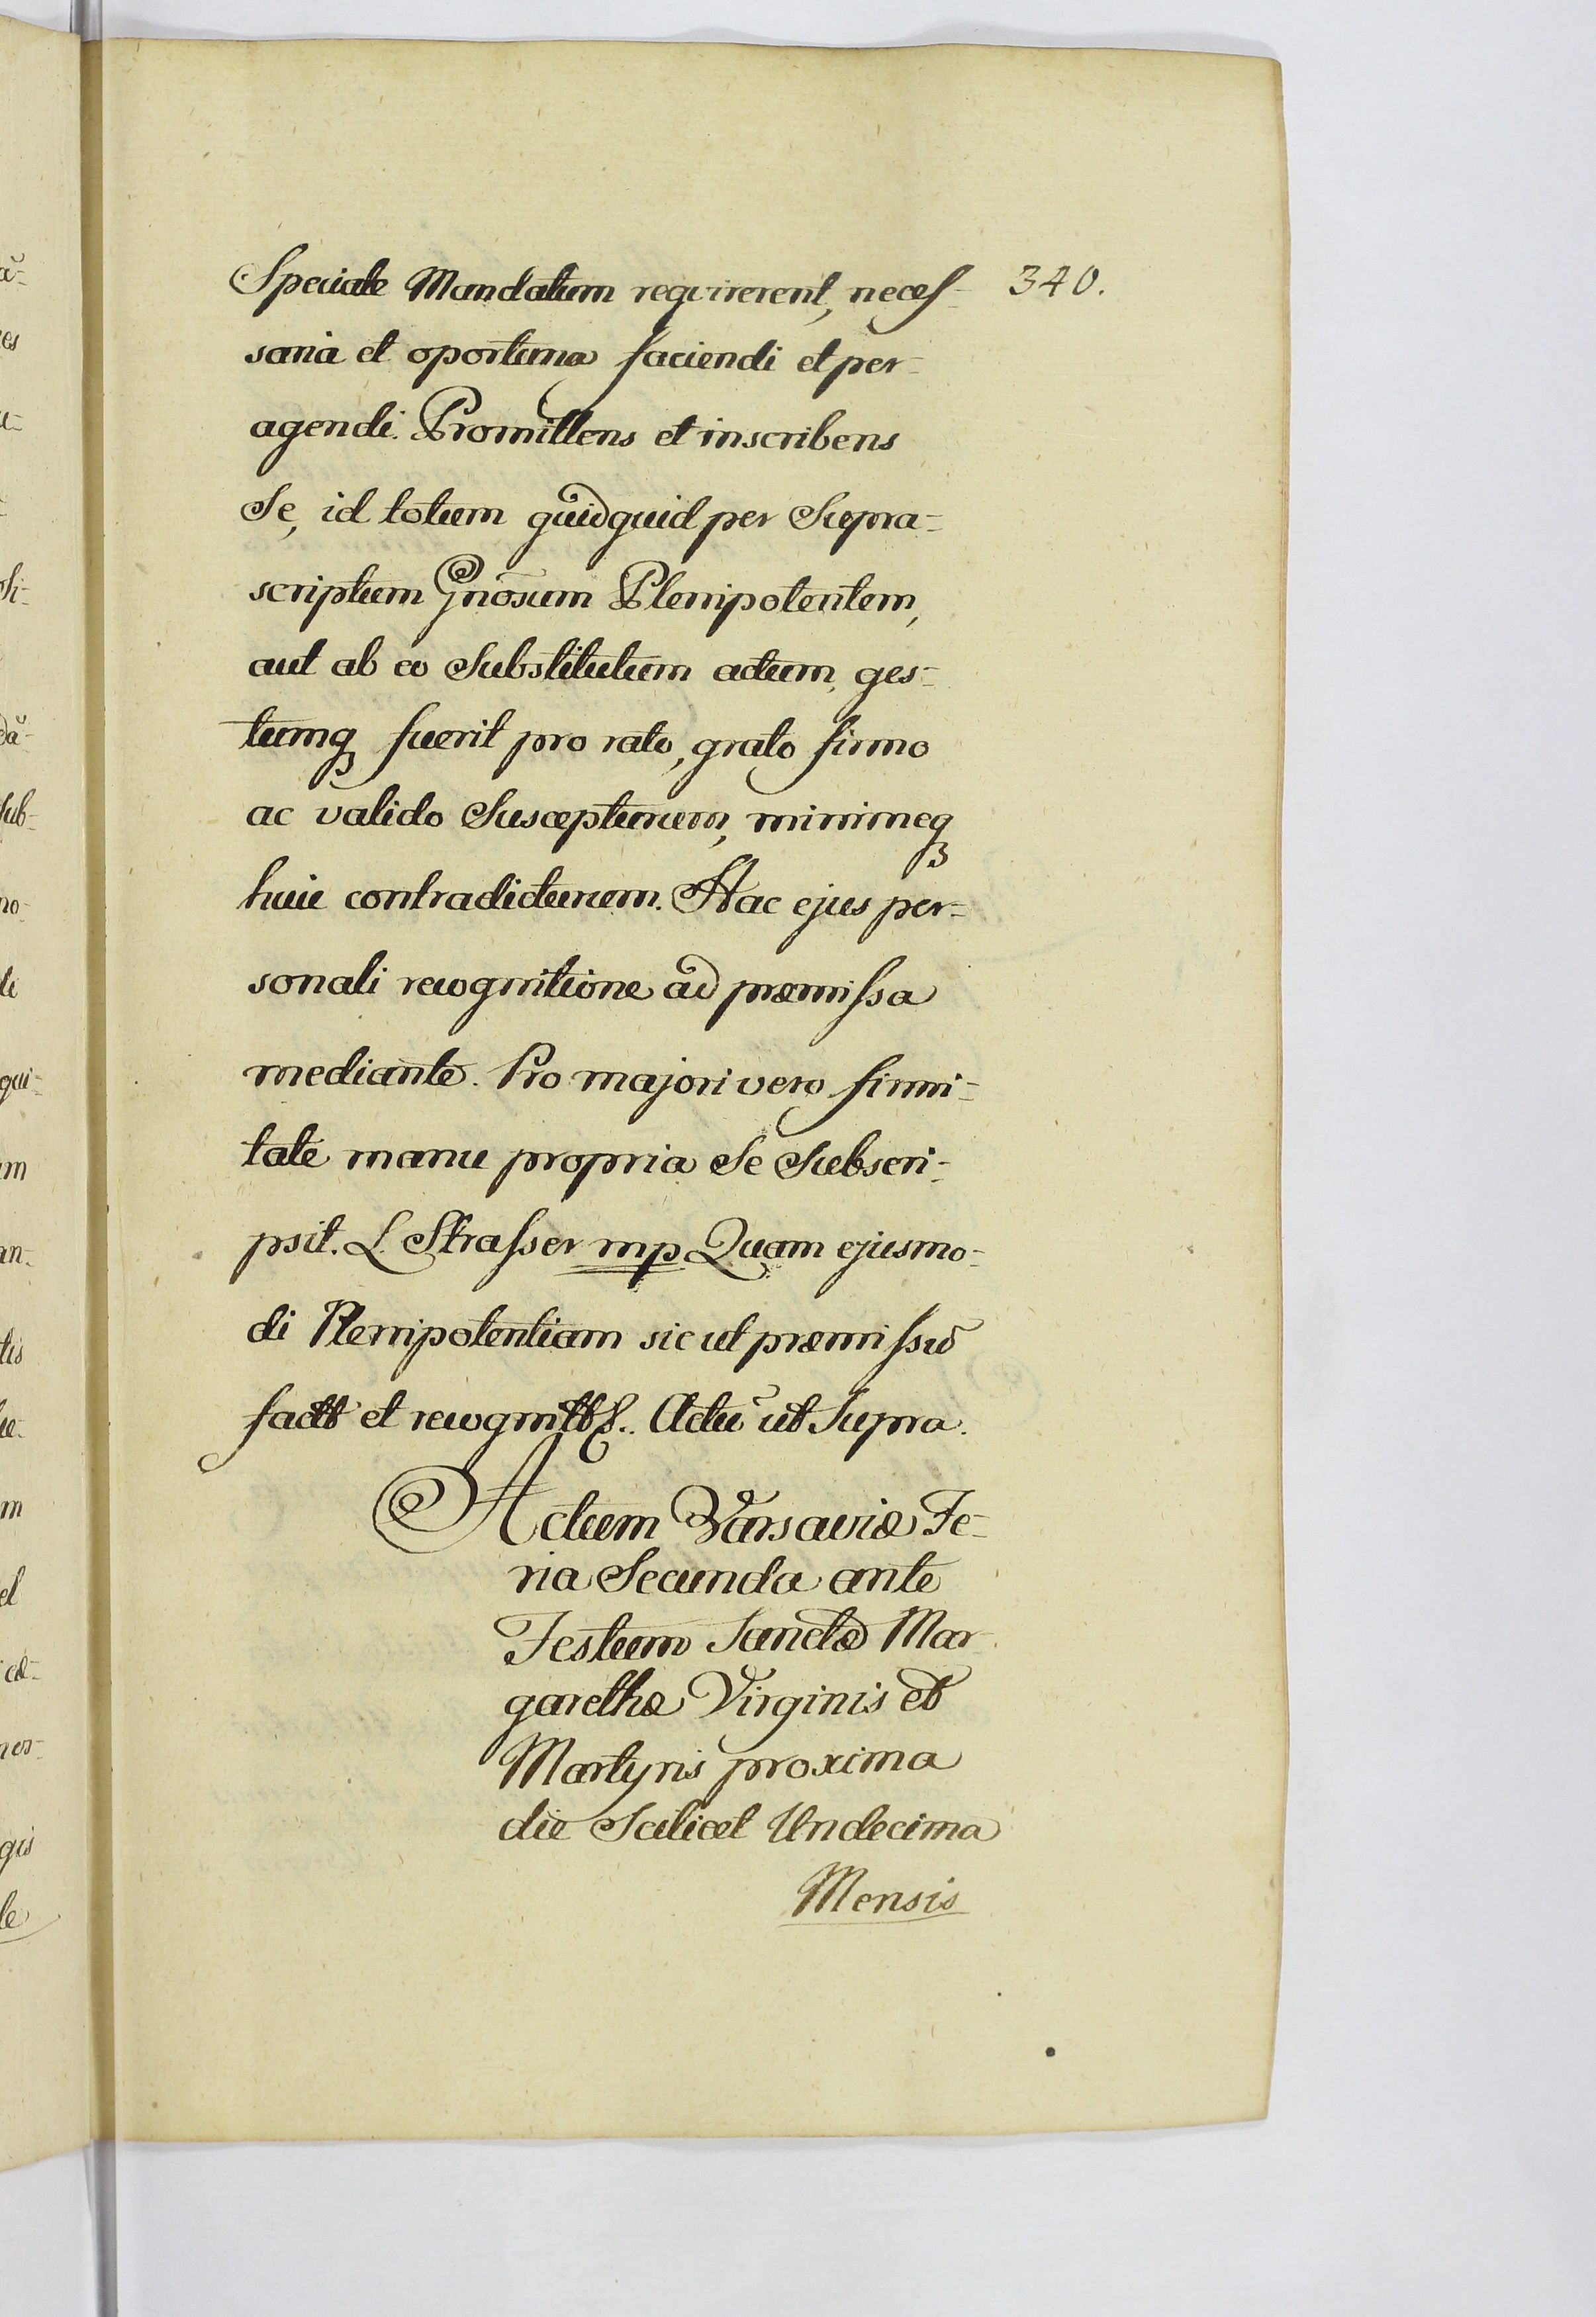 340.
Speciale Mandatum requirerent, neces-
saria et oportuna faciendi et per-
agendi. Promittens et inscribens
Se, id totum quidquid per Supra-
scriptum Gnosum Plenipotentem,
aut ab eo Substitutum actum, ges-
tumq fuerit pro rato, grato firmo
ac valido Suscepturum, minimeq
huic contradicturum. Hac ejus per-
sonali recognitione ad præmissa
mediante. Pro majori vero firmi-
tate manu propria Se Subscri-
psit. L. Strasser mp Quam ejusmo-
di Plenipotentiam sic ut præmissũ
et Actũ ut Supra.
Actum Varsaviæ Fe-
ria Secunda ante
Festum Sanctæ Mar-
garethæ Virginis et
Martyris proxima
die Scilicet Undecima
Mensis